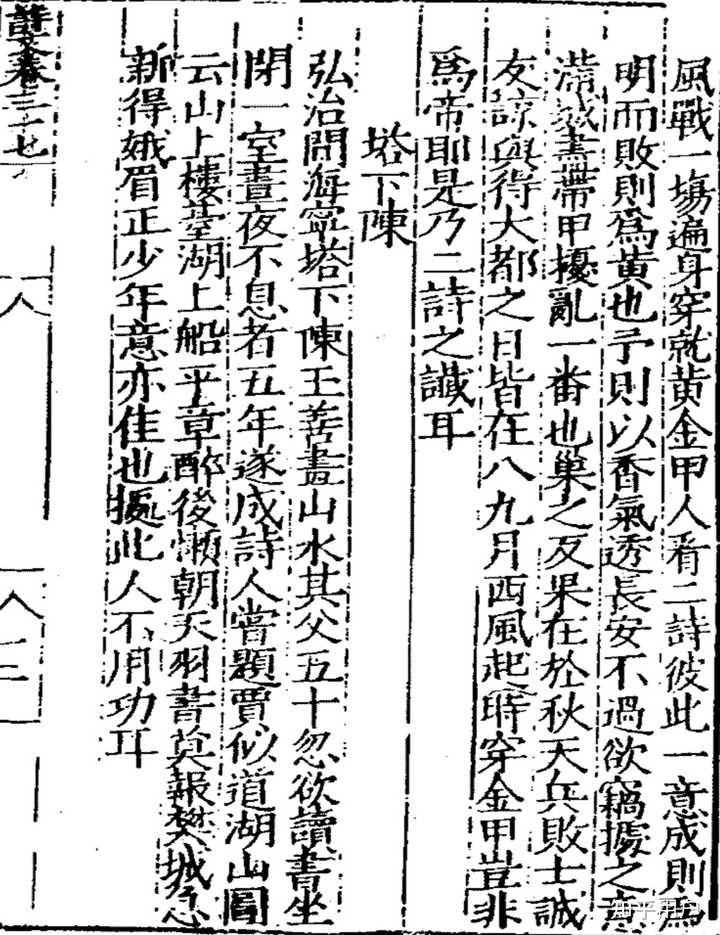 風戰一塲遍身穿就黄金甲人看二詩彼此一意成則爲
明而敗則爲黄也予則以香氣透長安不過欲竊據之意
滿城盡帶甲擾亂一番也巢之反果在於秋天兵敗士誠
友諒與得大都之日皆在八九月西風起時穿金甲豈非
爲帝耶是乃二詩之讖耳
塔下陳
弘治間海寧塔下陳王善畫山水其父五十忽欲讀書坐
閉一室晝夜不息者五年遂成詩人嘗題賈似道湖山圖
云山上樓臺湖上船平章醉後懶朝天羽書莫報樊城急
新得娥眉正少年意亦佳也據此人不用功耳
卷三十七
知乎用户